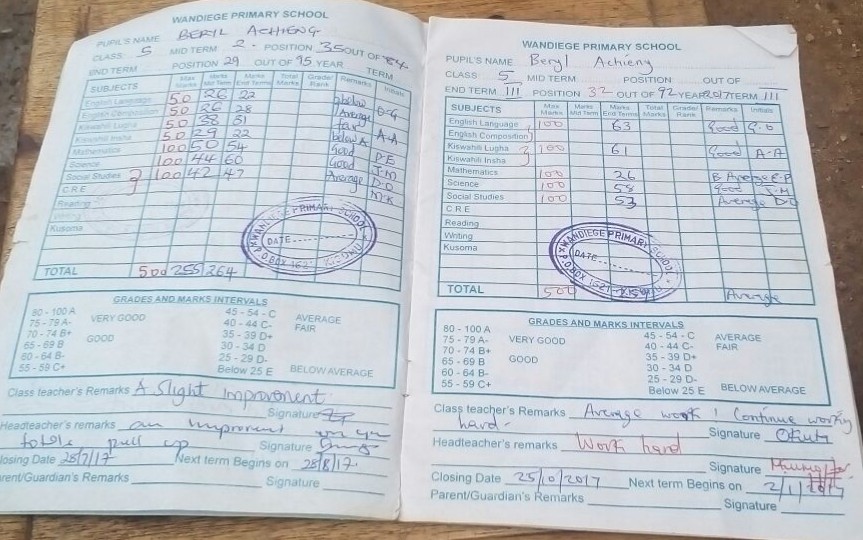 WANDIEGE PRIMARY SCHOOL
PUPIL'S NAME BERYL ACHIENG
CLASS: 5 MID TERM 2. POSITION 35 OUT OF 84
END TERM POSITION 29 OUT OF 95 YEAR TERM
SUBJECTS Max Marks Marks Mid Term Marks End Terms Total Marks Grade/Rank Remarks Initials
English Language 50 26 22 below
English Composition 50 26 28 Average O-G
Kiswahili Lugha 50 38 31 fair
Kiswahili Insha 50 29 22 below A A-A
Mathematics 100 50 54 Good
Science 100 44 60 Good P-E
Social Studies 100 42 47 Average J-M
C.R.E D-O
Reading M-K
Writing
Kusoma
WANDIEGE PRIMARY SCHOOL
DATE
P.O. BOX 1521 - KISUMU
TOTAL 500 255 264
GRADES AND MARKS INTERVALS
80 - 100 A 45 - 54 - C
75 - 79 A- VERY GOOD 40 - 44 C- AVERAGE
70 - 74 B+ 35 - 39 D+ FAIR
65 - 69 B GOOD 30 - 34 D
60 - 64 B- 25 - 29 D-
55 - 59 C+ Below 25 E BELOW AVERAGE
Class teacher's Remarks A Slight Improvement
Signature
Headteacher's remarks an improvement on your
totals pull up Signature
losing Date 28/7/17 Next term Begins on 28/8/17.
rent/Guardian's Remarks Signature
WANDIEGE PRIMARY SCHOOL
PUPIL'S NAME Beryl Achieng
CLASS 5 MID TERM POSITION OUT OF
END TERM III POSITION 32 OUT OF 92 YEAR 2017 TERM III
SUBJECTS Max Marks Marks Mid Term Marks End Terms Total Marks Grade/Rank Remarks Initials
English Language 100 63 Good G.O
English Composition
Kiswahili Lugha 100 61 Good A-A
Kiswahili Insha
Mathematics 100 26 B Average E-P
Science 100 58 Good J-M
Social Studies 100 53 Average D-O
C.R.E
Reading
Writing
Kusoma
WANDIEGE PRIMARY SCHOOL
DATE
P.O. BOX 1521 - KISUMU
TOTAL 500 Average
GRADES AND MARKS INTERVALS
80 - 100 A 45 - 54 - C AVERAGE
75 - 79 A- VERY GOOD 40 - 44 C- FAIR
70 - 74 B+ 35 - 39 D+
65 - 69 B GOOD 30 - 34 D
60 - 64 B- 25 - 29 D-
55 - 59 C+ Below 25 E BELOW AVERAGE
Class teacher's Remarks Average work! Continue working
hard. Signature
Headteacher's remarks Work hard
Signature
Closing Date 25/10/2017 Next term Begins on 2/1/
Parent/Guardian's Remarks Signature